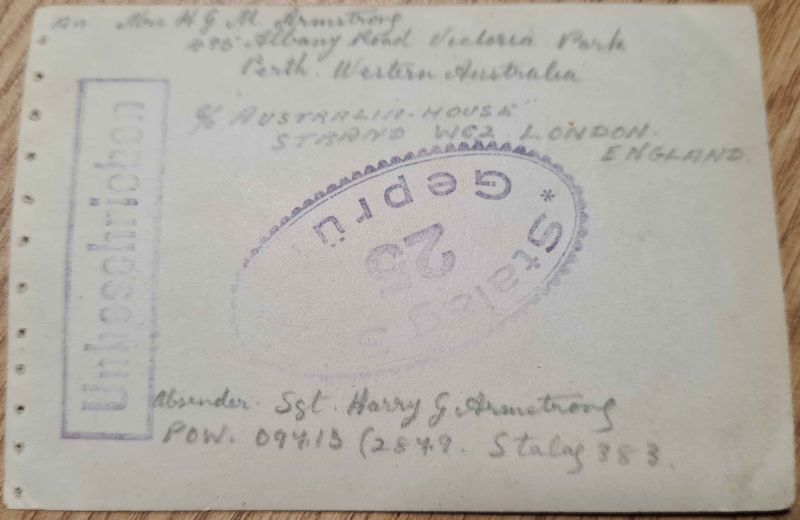 An Mrs H G M. Armstrong
495 Albany Road Victoria Park
Perth. Western Australia
c/o AUSTRALIA-HOUSE
STRAND WC2 LONDON.
ENGLAND.
Unbeschrieben
* Stalag 3
Geprü
25
Absender. Sgt. Harry G Armstrong
POW. (2879. Stalag 383.